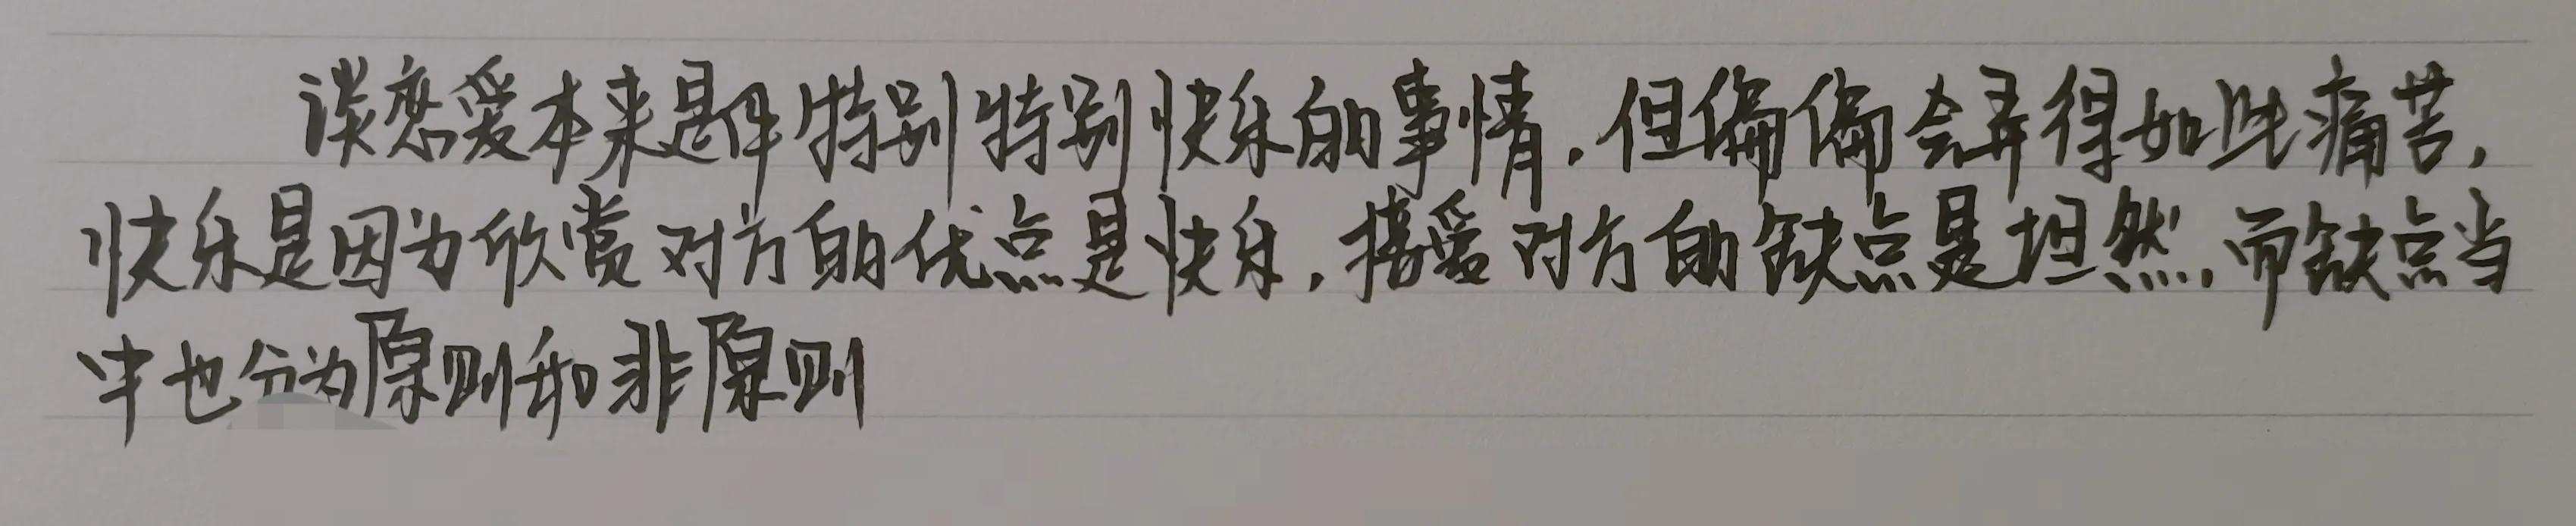 谈恋爱本来是件特别特别快乐的事情,但偏偏会弄得如此痛苦,
快乐是因为欣赏对方的优点是快乐,接受对方的缺点是坦然,而缺点当
中也分为原则和非原则